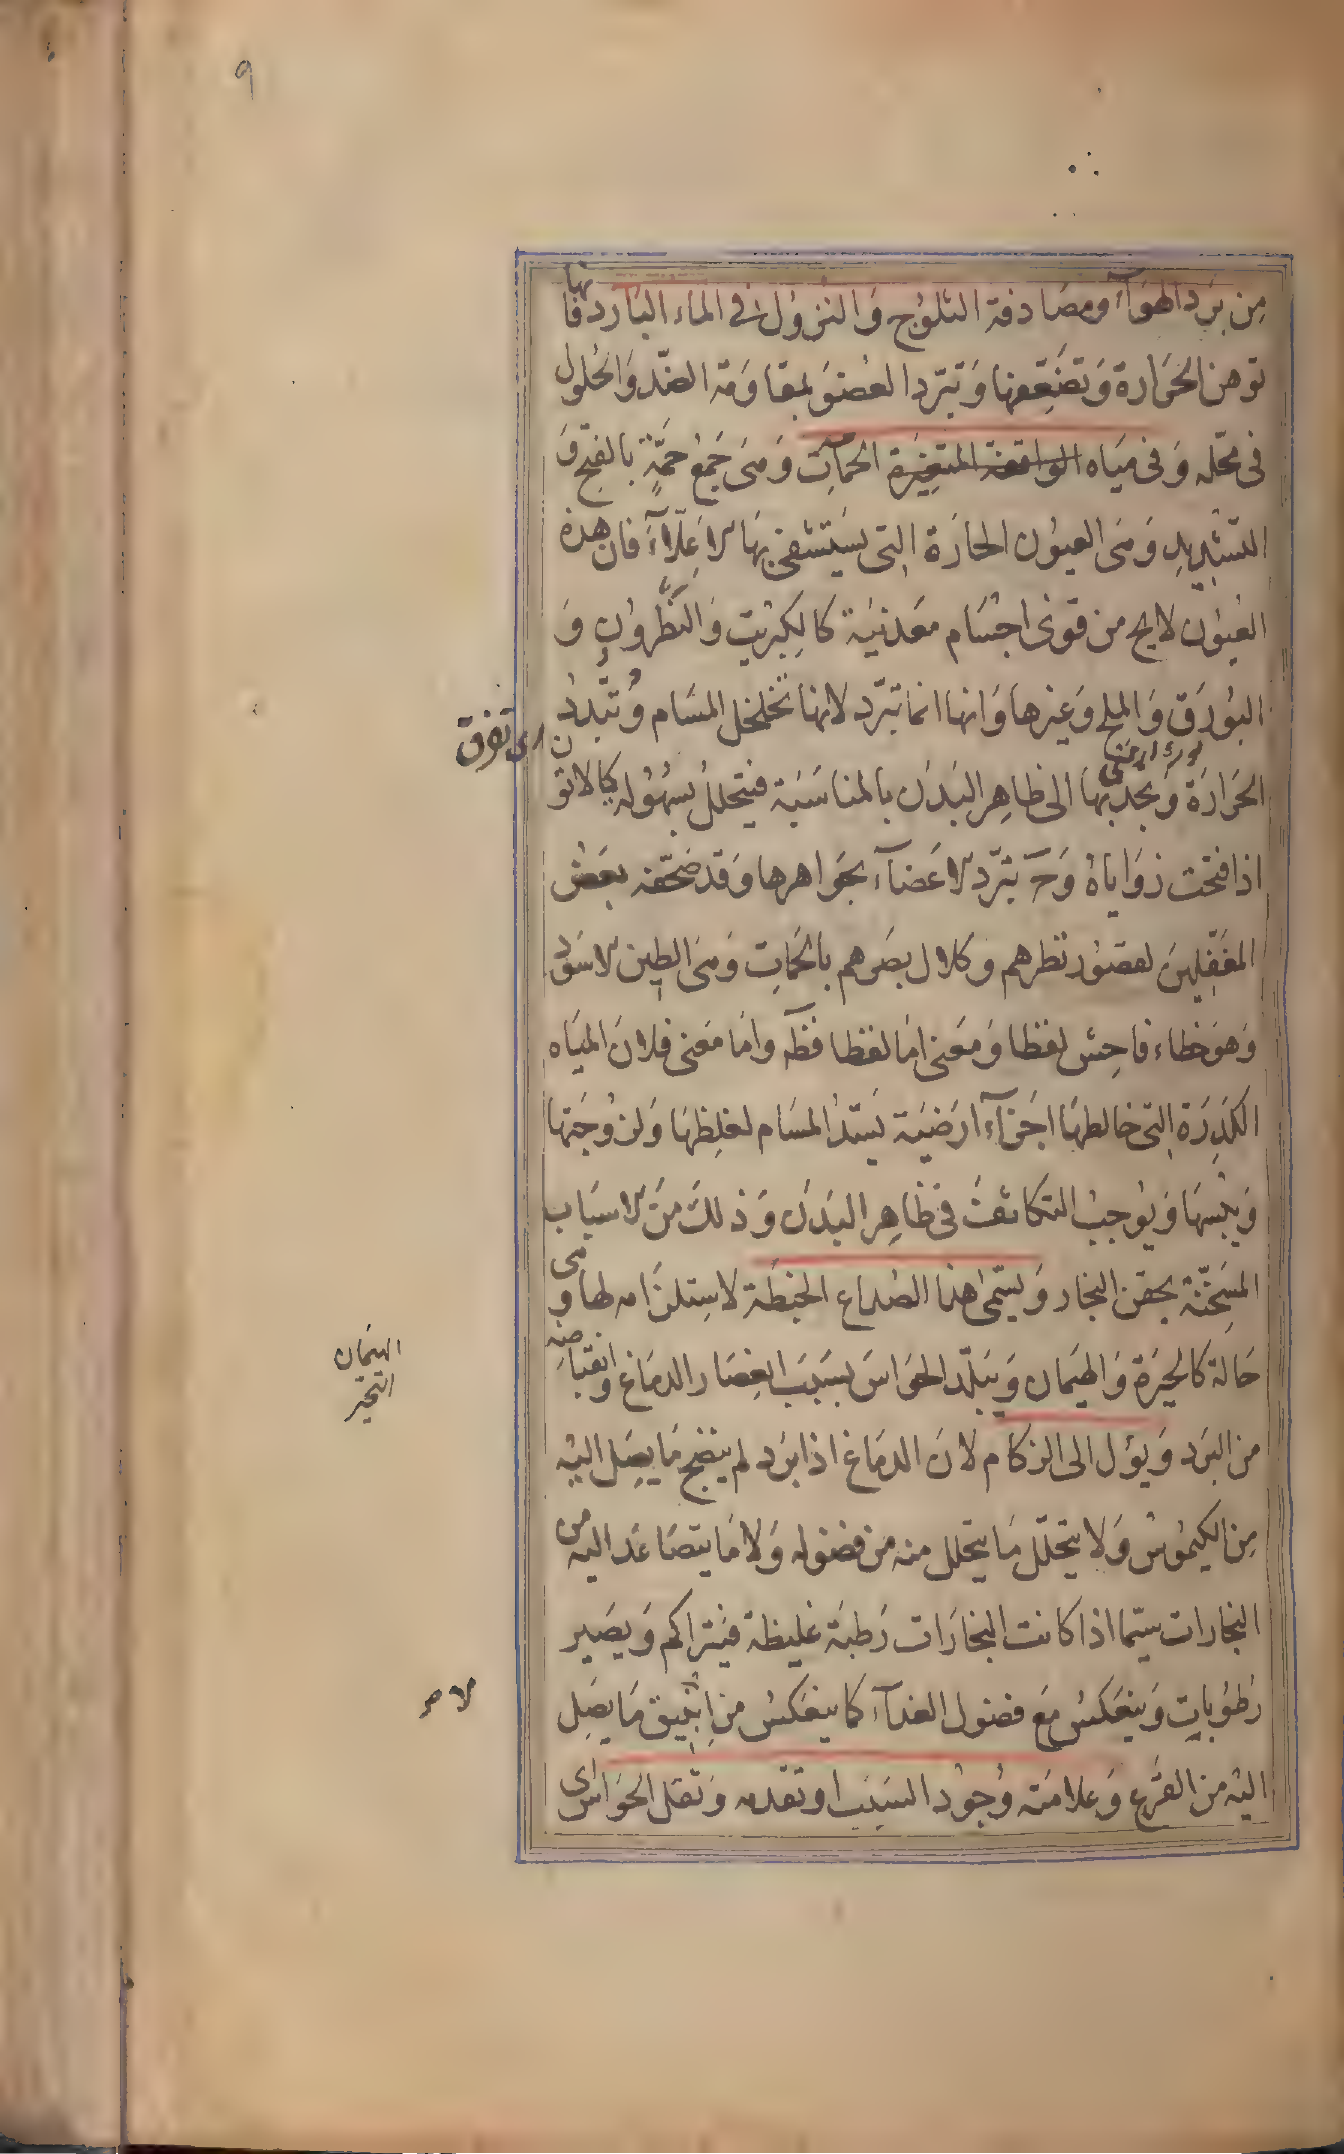 ٩
مِن بَرَد الهوَآء ومصَادفة الثلوُج وَالنزوُل في الماء البَارد فانها
توهن الحَرارة وَتضَعِفها وَتبَرّد العضوَ بمقاوَمة الضّد وَالحُلول
فى محَلّه وَفى ميَاه الواقعة المتغيَرة الحَمآت وَهىَ جَمعُ حَمَّةٍ بالفتح وَ
التشدِيدِ وَهىَ العيوُن الحارَة التى يسَتشفى بهَا الاعِلّاءَ فان هذه
العُيوُن لا يخ من قوىٰ اجسَام معَدنيَة كالكِبرَيت وَالنَطروُن وَ
البوُرَق وَالملح وَغيرها وَانها انما تبرّد لانها تخلخل المسَام وُتبَّددُ
اى تفرق
بورۀ ارمنى
الحَرارَة وَبجذبها الى ظاهِر البَدَن بالمناسَبَة فيتحللُ بسهُوُلة كالاتون
اذا فتحت زوَاياهُ وَحَ تبرّد الاعَضاَء بجَواهرها وَقد صَحّفه بعَضُ
المغَفّلِينَ لقصوُر نظرهم وكلال بصَرهم بالحَمات وَهىَ الطِين الاسَود
وَهوَ خطاء فاحِش لفظا وَمعَنى امَا لفظا فظَه وامَا مَعنى فلانَ الميَاه
الكَدِرَة التى خالطهَا اجَزآء ارَضيَة يَسَدّ المسَام لغِلظهَا وَلزوُجَتها
وَيبُسهَا وَيوُجبُ التكاثفَ فى ظَاهِر البَدَن وَذلكَ منَ الاسَباب
المسَخّنة بحقن البخار وَيسَمّى هذا الصُداع الخبطَة لاستلزَامه لها وَهى
حَالة كالحيَرَة وَالهيَمان وَيبَلّد الحوَاسَ بسَبَب انعِصَار الدمَاغ وانقباضه
الهيمان
التحير
من البَرَد وَيؤل الى الزكام لانَ الدمَاغ اذا برَد لم ينضج مَا يصِل اليَه
مِن الكيموُسَ وَلا يتحَلّل مَا يتحلل منه من فضوله وَلا مَا يتصَاعَد اليه من
البخارات سيّما اذا كانت البخارَات رَطبَة غليظة فيَتراكم وَيصَير
رَطوُبات وَينعَكسُ معَ فضول الغذآء كما ينعَكسُ من انبَيق مَا يصَِل
اليهُ من القَرع وَعلامَته وُجوُد السَبَب او تقدمه وَثقل الحَوَاسّ اى